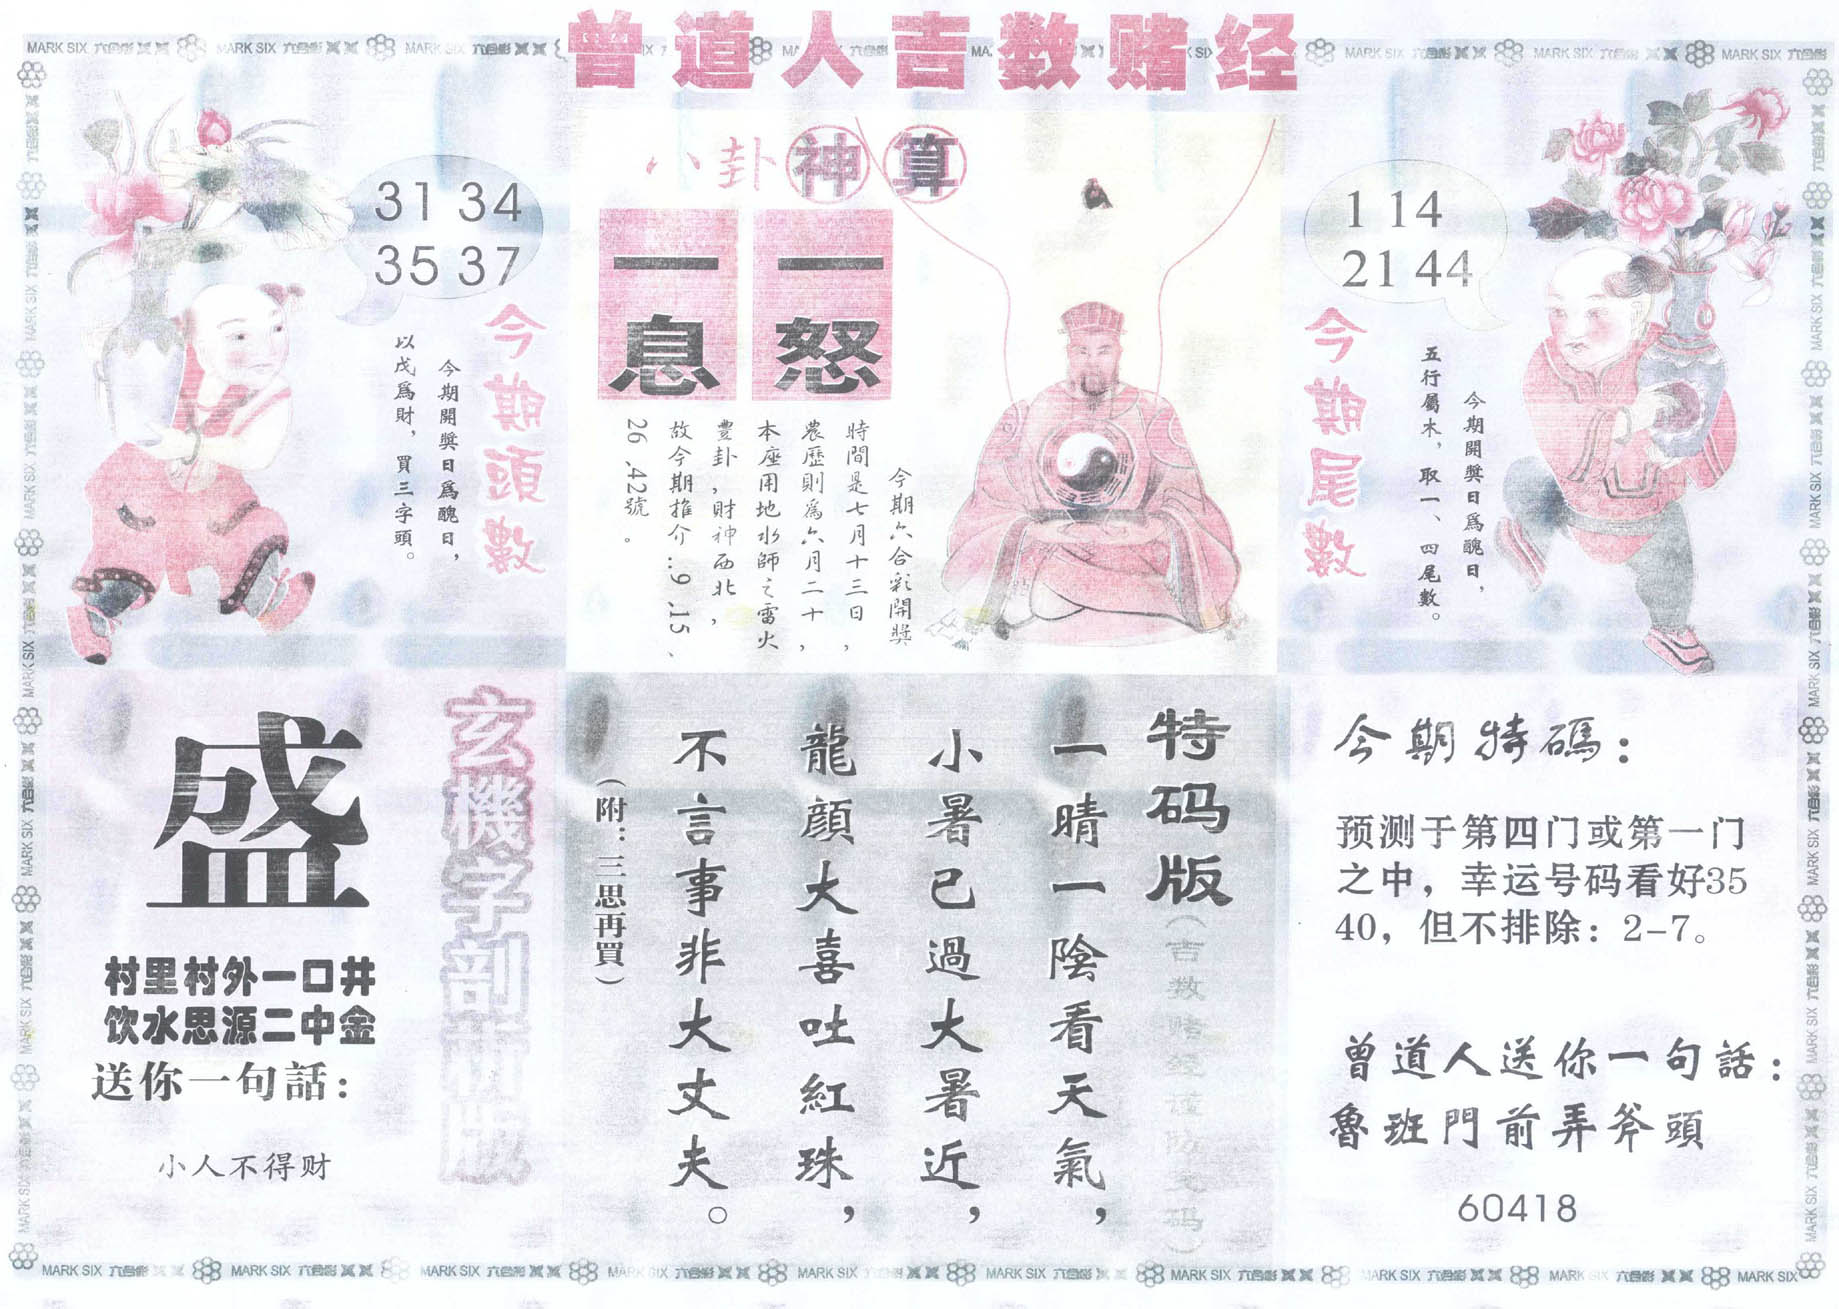 曾道人吉数赌经
MARK SIX 六合彩
八卦神算
一怒
一息
今期六合彩開獎
時間是七月十三日，
農歷則為六月二十，
本座用地水師之雷火
豐卦，財神西北，
故今期推介...9 .15 、
26 .42號。
31 34
35 37
今期頭數
今期開獎日為醜日，
以戊爲財，買三字頭。
1 14
21 44
今期尾數
今期開獎日為醜日，
五行屬木，取一、四尾數。
玄機字剖析版
盛
村里村外一口井
饮水思源二中金
送你一句話：
小人不得财
特码版
（吉数赌经谨防支码）
一晴一陰看天氣，
小暑已過大暑近，
龍顔大喜吐紅珠，
不言事非大丈夫。
（附：三思再買）
今期特碼：
预测于第四门或第一门
之中，幸运号码看好35
40，但不排除：2-7。
曾道人送你一句話：
魯班門前弄斧頭
60418